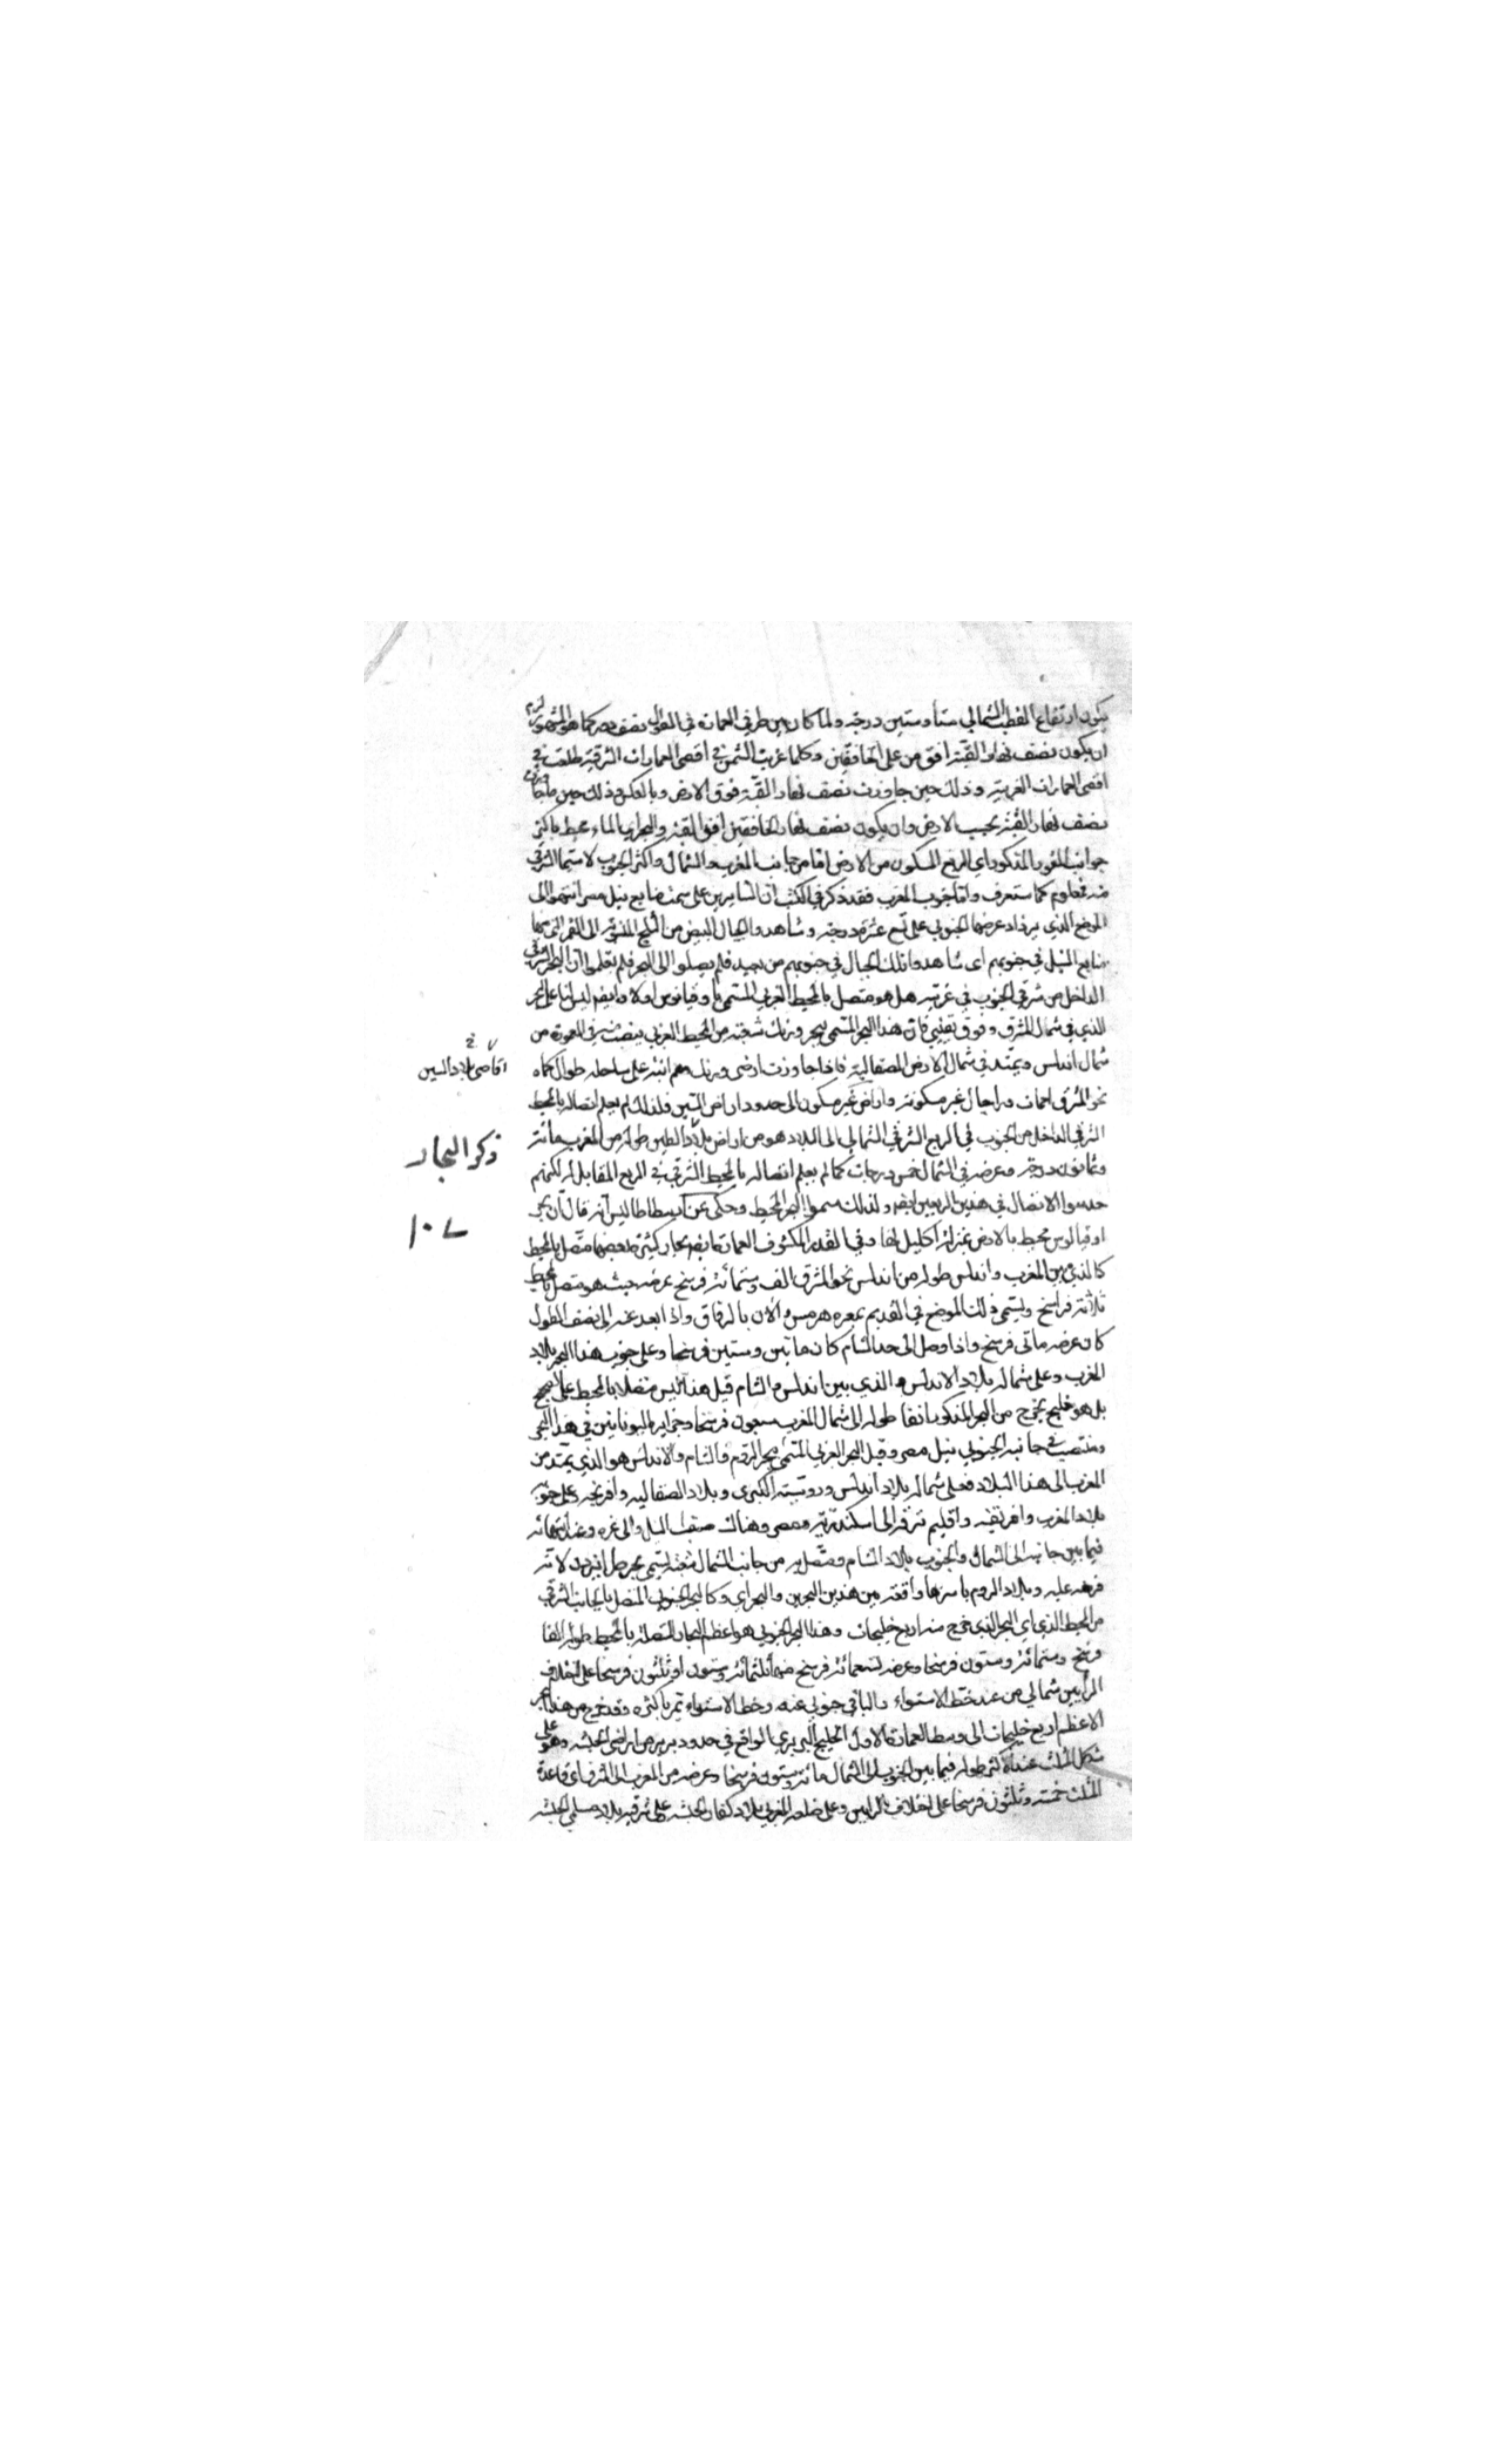 يكون ارتفاع القطب الشمالي ستا وستين درجة ولما كان بين طرفي العمارة في الطول نصف دور كما هو المشهور لزم
ان يكون نصف نهار القبة افق من على الخافقين وكلما غربت الشمس في اقصى العمارات الشرقية طلعت في
اقصى العمارات الغربية وذلك حين جاوزت نصف نهار القبة فوق الارض وبالعكس وذلك حين ما جاوزت
نصف نهار القبة بحسب الارض وان يكون نصف نهار الخافقين افق القبة والبحر اي الماء محيط باكثر
جوانب المعمور المذكور اي الربع المسكون من الارض اما من جانب المغرب والشمال واكثر الجنوب لا سيما الشرقي
منه فمعلوم كما ستعرف واما جنوب المغرب فقد ذكر في الكتب ان السايرين على سمت منابع نيل مصر انتهوا الى
الموضع الذي يزداد عرضها الجنوبي على تسع عشرة درجة وشاهدوا الجبال البيض من الثلج المنسوبة الى القمر التي منها
منابع النيل في جنوبهم اى شاهدوا تلك الجبال في جنوبهم من بعيد فلم يصلوا الى البحر فلم يعلموا ان البحر الشرقي
الداخل من شرقي الجنوب في غربيه هل هو متصل بالمحيط الغربي المسمى باوقيانوس اولا وايضا ليس لنا علم بالبحر
الذي في شمال المشرق وفوق فان هذا البحر المسمى ببحر ورنك شعبة من المحيط الغربي في العمورة من
شمال اندلس ويمتد في شمال الارض الصقالبة فاذا جاوزت ارض ورنك وهم امة على ساحله طوال
نحو المشرق جبال غير مسكونة واراض غير مسكون الى حدود اراض الصين فلذلك لم يعلم اتصاله بالمحيط
الشرقي الداخل من الجنوب في الربع الشرقي الشمالي الى البلاد هو من اراض بلاد الصين طولها من المغرب مائة
وثمانون درجة وعرضه في الشمال خمس درجات كما لم يعلم اتصاله بالمحيط الشرقي في الربع المقابل له لكنهم
حدسوا الاتصال في هذين الربعين ايضا ولذلك سموا البحر المحيط وحكى عن ارسطاطاليس انه قال ان بحر
اوقيانوس محيط بالارض بمنزلة اكليل لها وفي القدر المكشوف العمارة ايضا بحار كثيرة بعضها متصل بالمحيط
كالذي بين المغرب واندلس طوله من اندلس نحو المشرق الف وستمائة فرسخ عرضه حيث هو متصل بالمحيط
ثلاثة فراسخ ويسمى ذلك الموضع في القديم بمعبرة هرمس والآن بالزقاق واذا ابعد عنه الى نصف الطول
كان عرضه مأتي فرسخ واذا وصل الى حد الشام كان مأتين وستين فرسخا وعلى جنوب هذا البحر بلاد
المغرب وعلى شماله بلاد الاندلس والذي بين اندلس والشام قيل هذا ليس متصلا بالمحيط على الاصح
بل هو خليج يخرج من البحر المذكور انفا طوله الى شمال المغرب سبعون فرسخا وجزاير اليونانيين في هذا البحر
ومنصب في جانبه الجنوبي نيل مصر وقيل البحر الغربي المسمى ببحر الروم والشام والاندلس هو الذي يمتد من
المغرب الى هذا البلاد فعلى شماله بلاد اندلس الكبرى وبلاد الصقالبه وافرنجه وعلى جنوبه
بلاد المغرب وافريقية واقليم الى اسكندرية ومصر وهناك والى غزه وعند انتهائه
فيما بين جانبه الى الشمال والجنوب بلاد الشام ومتصل به من جانب الشمال شعبة تسمى بحر لانه
فرضه عليه وبلاد الروم باسرها واقعة بين هذين البحرين والبحر اي وكالبحر الجنوبي المتصل بالجانب الشرقي
من المحيط الذي اي البحر الذي يخرج منه اربع خليجات وهذا البحر الجنوبي هو اعظم البحار المتصلة بالمحيط طوله الفا
فرسخ وستمائة وستون فرسخا وعرضه تسعمائة فرسخ منها ثلثمائة وستون او ثلثون فرسخا على اختلاف
الرأيين شمالي من عند خط الاستواء والباقي جنوبي عنه وخط الاستواء تمر باكثره وقد خرج من هذا البحر
الاعظم اربع خليجات الى وسط العمارة الاول الخليج البربري الواقع في حدود بربر من اراضي الحبشه وهو على
شكل المثلث عند طوله فيما بين الجنوب الى الشمال مائة وستون فرسخا وعرضه من المغرب الى المشرق اي قاعدة
المثلث خمسة وثلثون فرسخا على اختلاف الرايين وعلى ضلعه الغربي بلاد كفار الحبشه وعلى شرقيه بلاد مسلمي الحبشه
اقاصي بلاد الصين
ذكر البحار
١٠٧